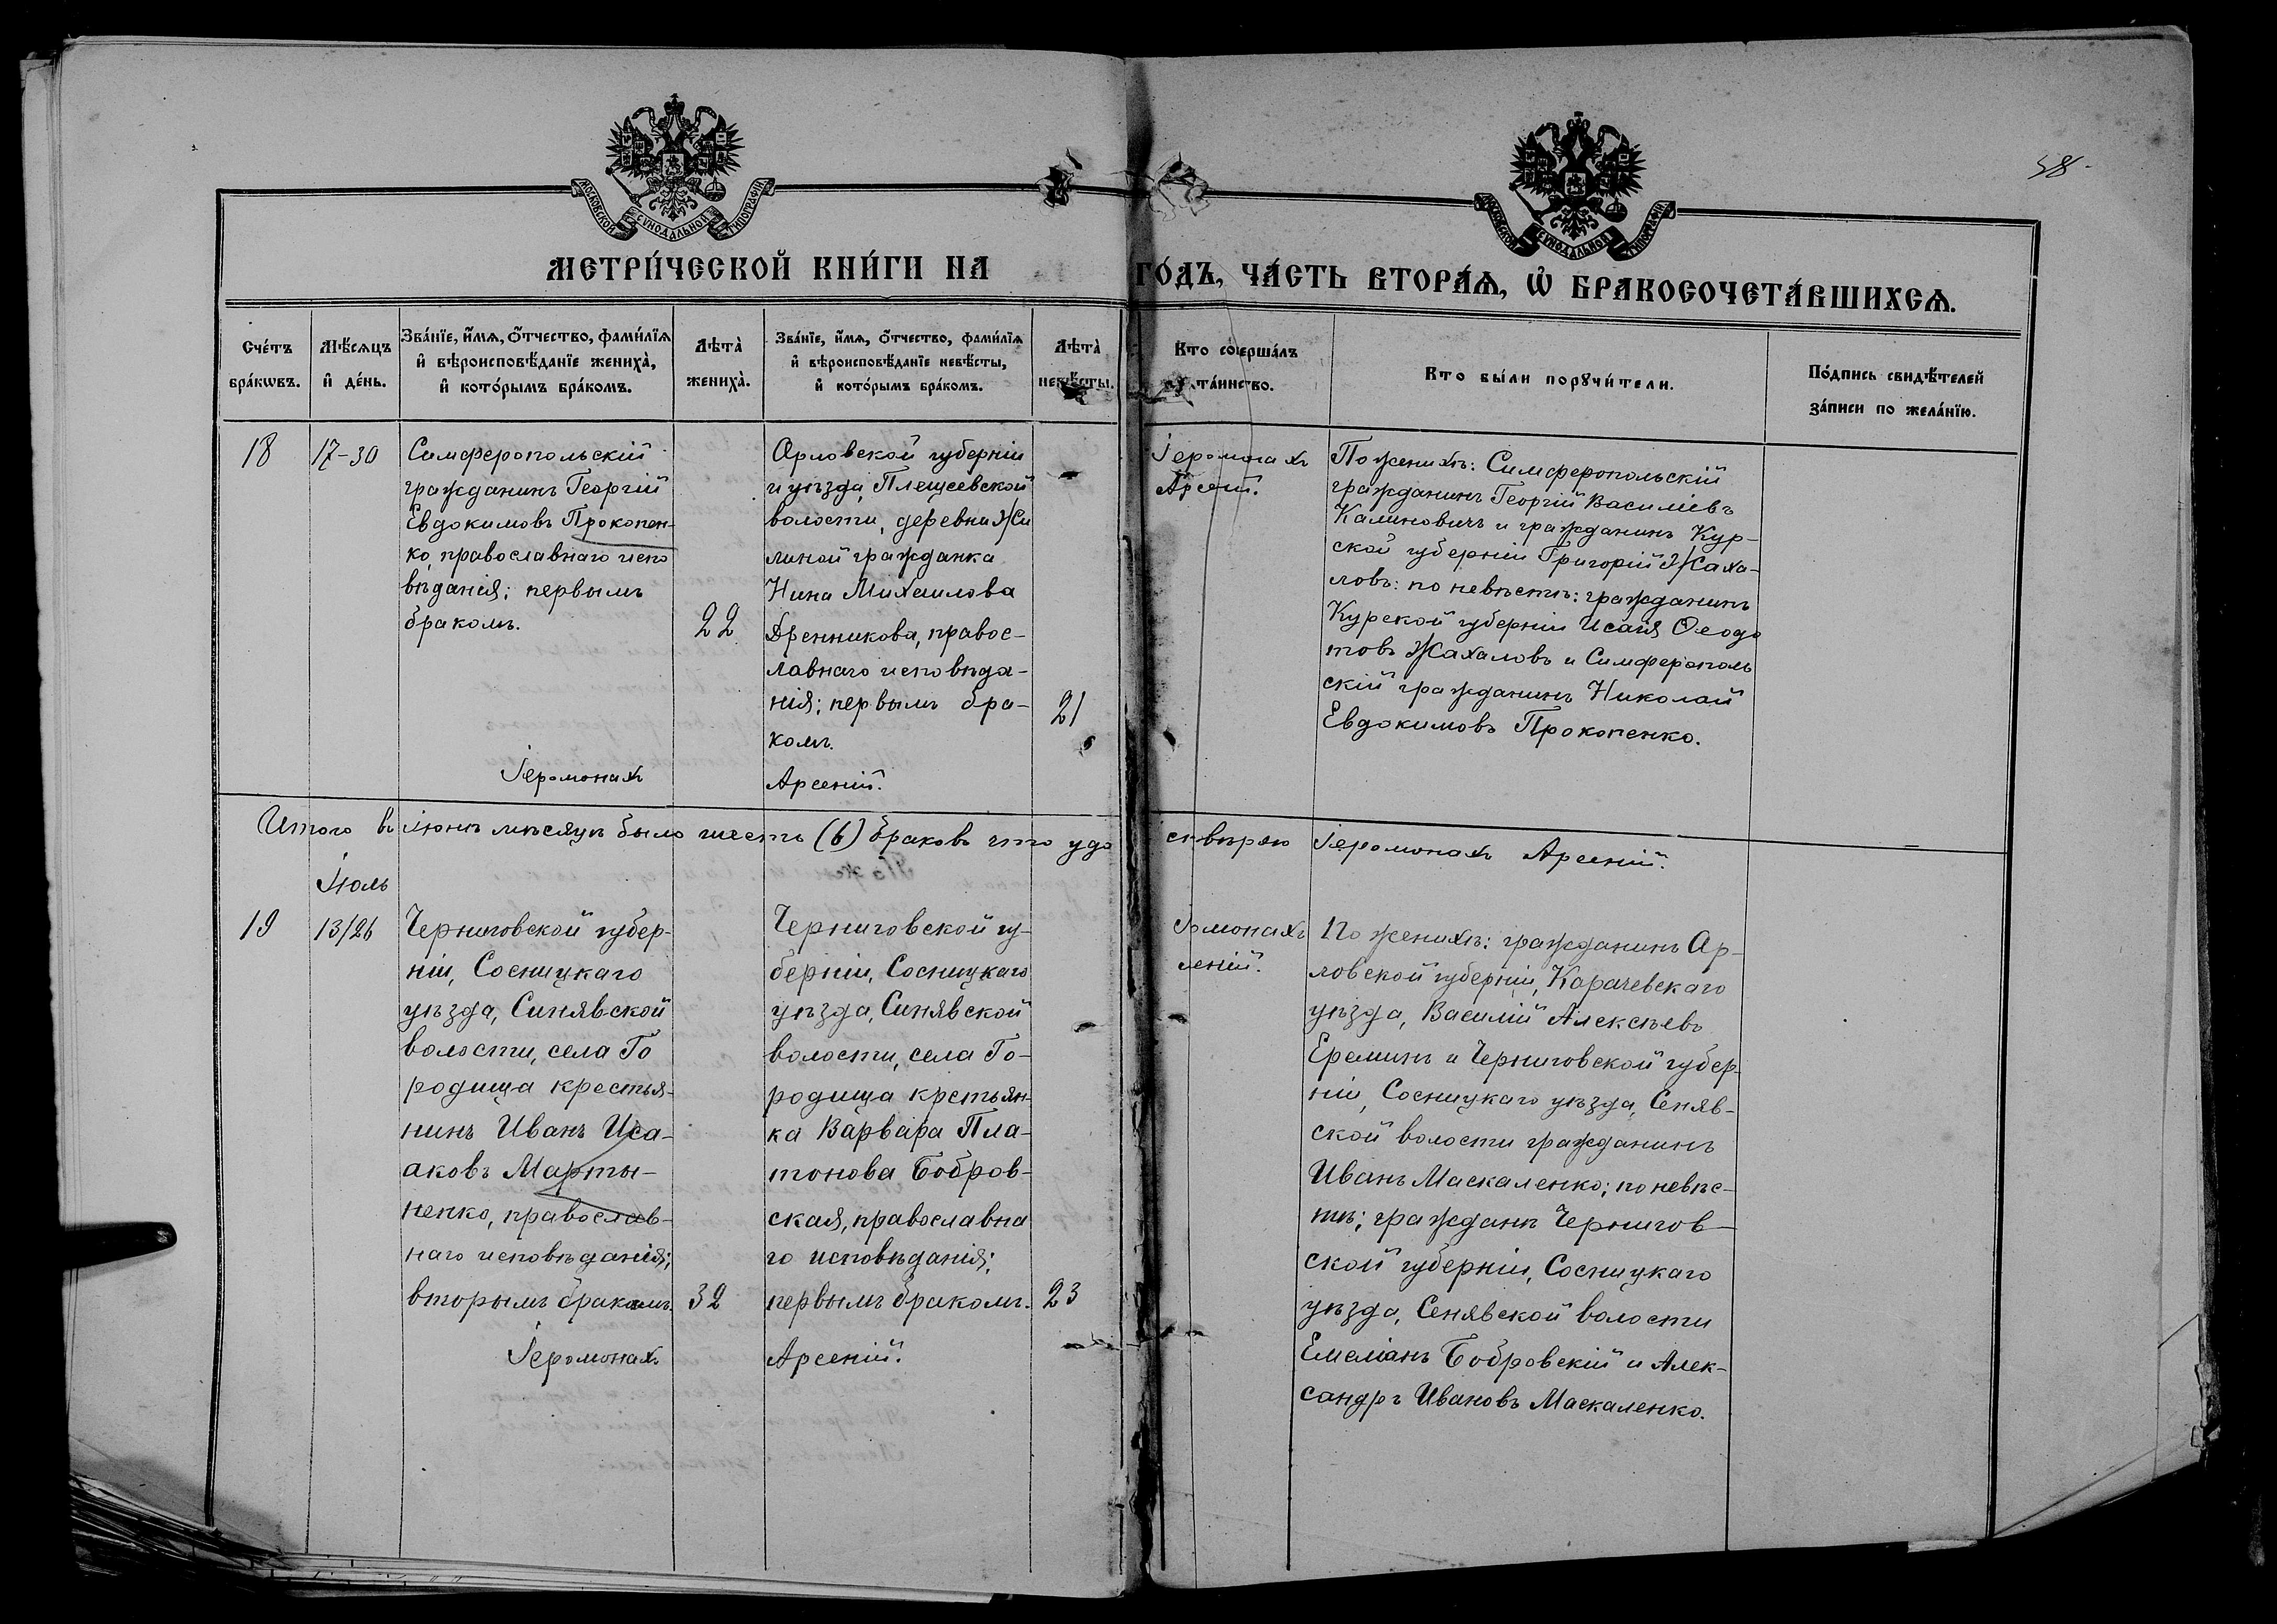 58
МОСКОВСКОЙ СѴНОДАЛЬНОЙ ТИПОГРАФІИ
МОСКОВСКОЙ СѴНОДАЛЬНОЙ ТИПОГРАФІИ
МЕТРИ́ЧЕСКОЙ КНИ́ГИ НА ГО́ДЪ, ЧА́СТЬ ВТОРА́Ѧ, Ѽ БРАКОСОЧЕТА́ВШИХСѦ.
Сче́тъ
бра́кѡвъ.
Мѣ́сѧцъ
и҆ де́нь.
Зва́нїе, и҆́мѧ, ѻ҆́тчество, фами́лїѧ
и҆ вѣроисповѣ́данїе жениха̀,
и҆ кото́рымъ бра́комъ.
Лѣта̀
жениха̀.
Зва́нїе, и҆́мѧ, ѻ҆́тчество, фами́лїѧ
и҆ вѣроисповѣ́данїе невѣ́сты,
и҆ кото́рымъ бра́комъ.
Лѣта̀
невѣ́сты.
Кто соверша́лъ
та́инство.
Кто бы́ли порꙋчи́тели.
По́дпись свидѣ́телей
за́писи по жела́нїю.
18
17-30
Симферопольскій
гражданинъ Георгій
Евдокимовъ Прокопен-
ко, православнаго испо
вѣданія; первымъ
бракомъ.
22
Іеромонахъ
Орловской губерніи
и уѣзда, Плещеевской
волости, деревни Жи
линой гражданка
Нина Михаилова
Дренникова, правос-
лавнаго исповѣда-
нія; первымъ бра-
комъ.
21
Арсеній.
Іеромонахъ
Арсеній.
По женихѣ: Симферопольскій
гражданинъ Георгій Василіевъ
Калиновичъ и гражданинъ Кур-
ской губерніи Григорій Жаха-
ловъ: по невѣстѣ: гражданинъ
Курской губерніи Исаія Ѳеодо
товъ Жахаловъ и Симферополь
скій гражданинъ Николай
Евдокимовъ Прокопенко.
Итого въ Іюнѣ мѣсяцѣ было шесть (6) браковъ что удо стовѣряю Іеромонахъ Арсеній.
Іюль
19
13/26
Черниговской губер-
ніи, Сосницкаго
уѣзда, Синявской
волости, села Го
родища крестья-
нинъ Иванъ Иса-
аковъ Марты-
ненко, православ-
наго исповѣданія;
вторымъ бракомъ
32
Іеромонахъ
Черниговской гу-
берніи, Сосницкаго
уѣзда, Синявской
волости, села Го-
родища кретьян-
ка Варвара Пла-
тонова Бобров-
ская, православна
го исповѣданія;
первымъ бракомъ.
23
Арсеній.
По женихѣ: гражданинъ Ор-
ловской губерніи, Карачевскаго
уѣзда, Василій Алексѣевъ
Ереминъ и Черниговской губер-
ніи, Сосницкаго уѣзда, Сеняв-
ской волости гражданинъ
Иванъ Маскаленко; по невѣс-
тѣ; граждане Чернигов-
ской губерніи, Сосницкаго
уѣзда, Сенявской волости
Емеліанъ Бобровскій и Алек-
сандръ Ивановъ Маскаленко.